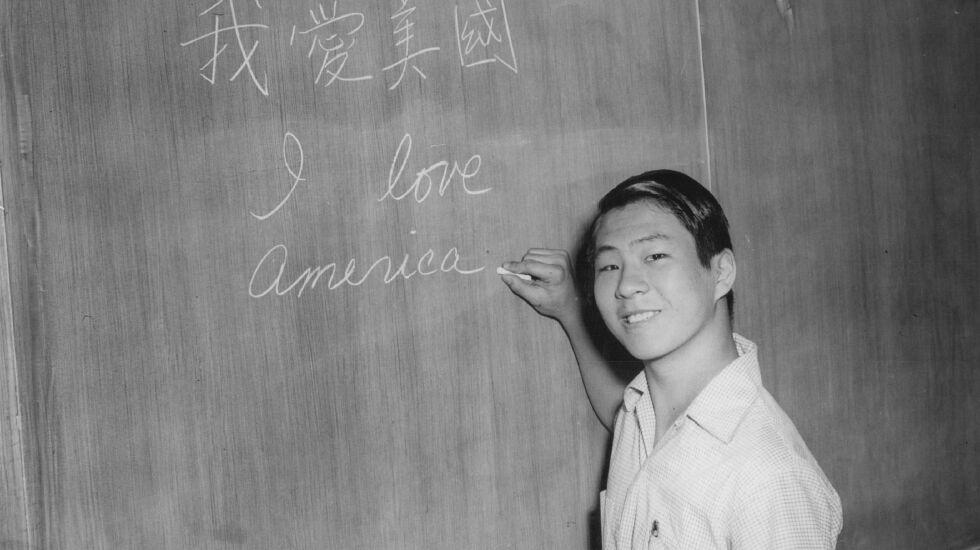 我愛美國
I love
America